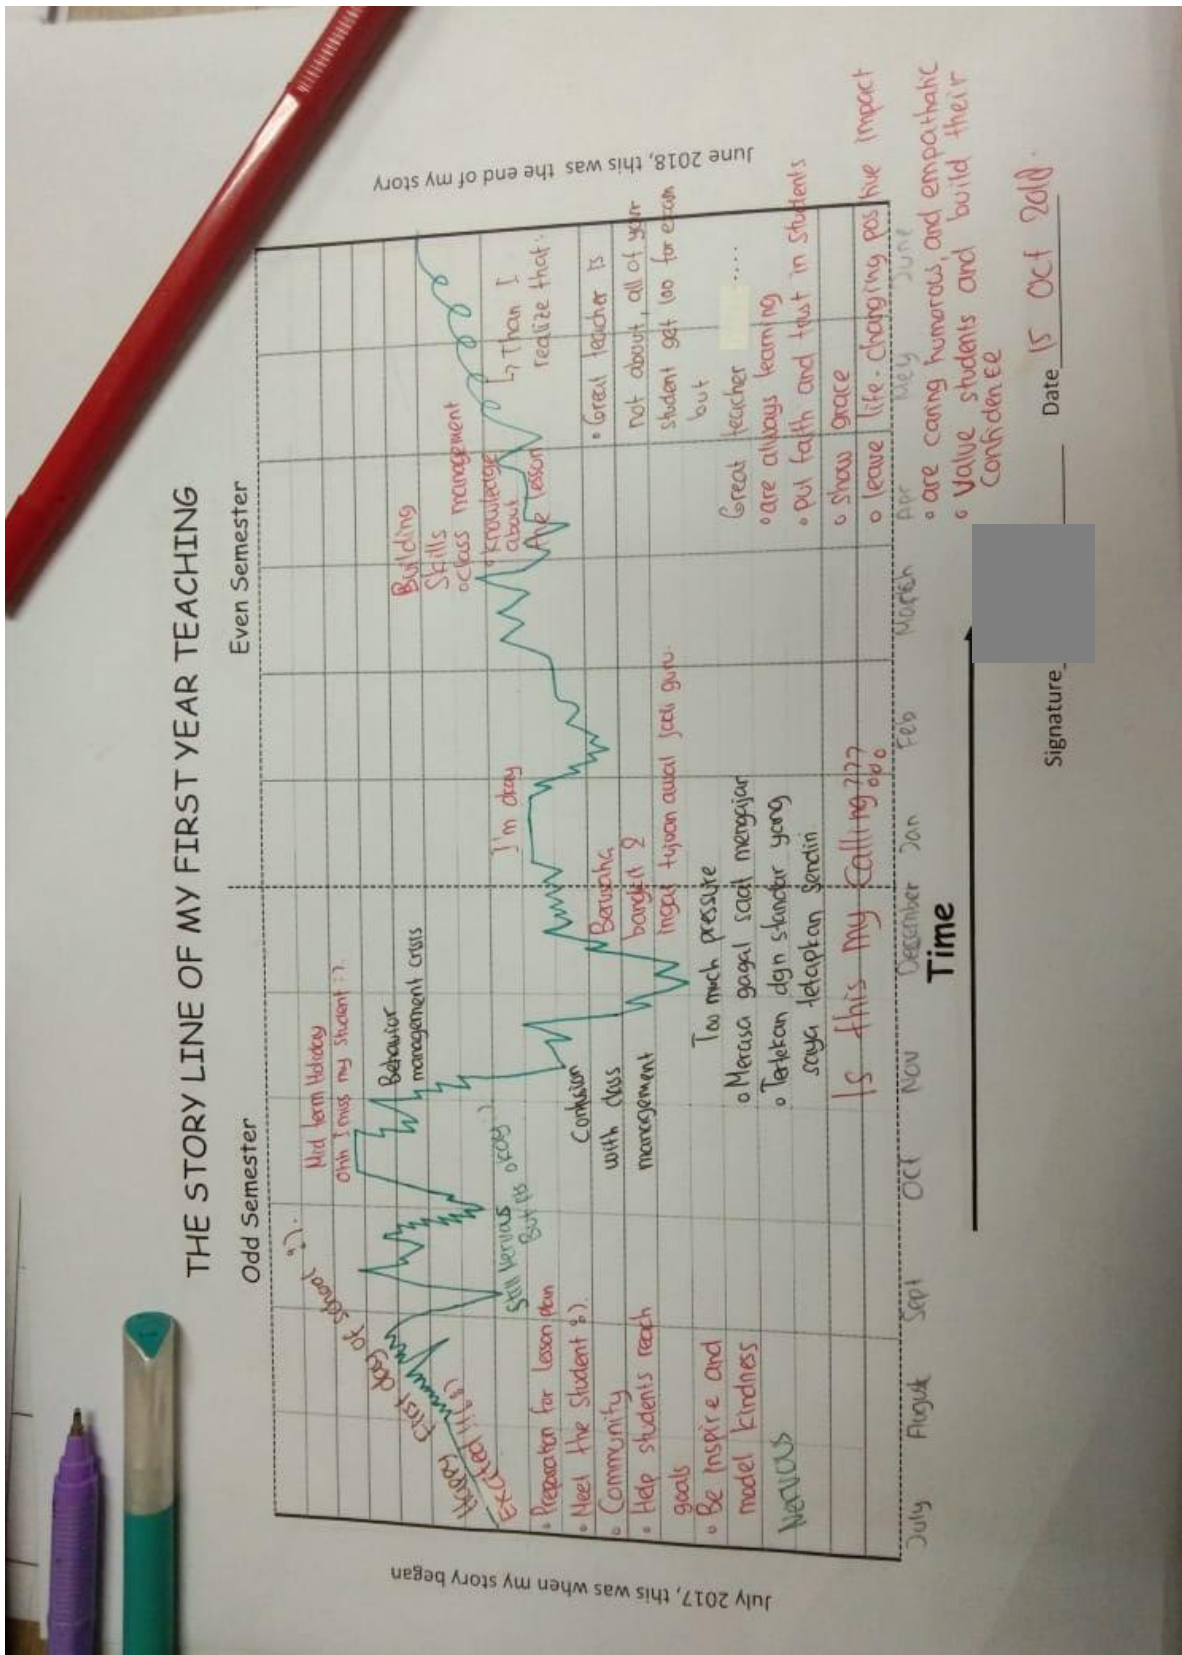 THE STORY LINE OF MY FIRST YEAR TEACHING
Odd Semester
Even Semester
July 2017, this was when my story began
June 2018, this was the end of my story
Happy First day of school :).
Excited !!
• Preparation for lesson plan
• Meet the Student :).
• Community
• Help students reach
goals
• Be Inspire and
model kindness
Nervous
Still Nervous
But its okay :)
Mid term Holiday
Ohh I miss my student :).
Behavior
management crisis
Confusion
with class
management
Too much pressure
• Merasa gagal saat mengajar
• Tertekan dgn standar yang
saya tetapkan sendiri
Is this my calling???
Berusaha
bangkit &
ingat tujuan awal jadi guru.
I'm okay
Building
Skills
• class management
• knowledge
about
the lesson
↳ Than I
realize that:
• Great teacher is
not about, all of your
student get 100 for exam
but
Great teacher .....
• are always learning
• put faith and trust in students
• show grace
• leave life-changing positive impact
• are caring humorous, and empathatic
• Value students and build their
Confidence
July August Sept Oct Nov December Jan Feb March Apr Mey June
Time
Signature
Date 15 Oct 2018.